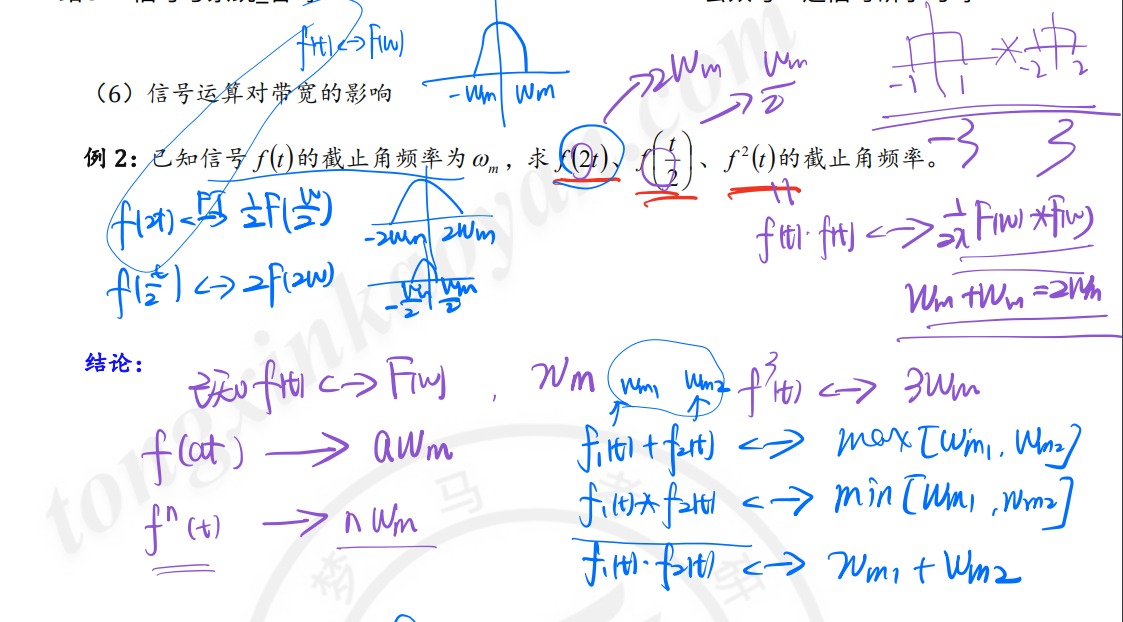 f(t)<->F(w)
-Wm Wm
(6)信号运算对带宽的影响
2Wm Wm/2
-1 1 * -2 2
-3 3
例 2:已知信号 f(t)的截止角频率为 ω_m,求 f(2t)、f(t/2)、f²(t)的截止角频率。
f(2t) <-> 1/2 F(w/2)
-2Wm 2Wm
f(t)·f(t) <-> 1/2π F(w)*F(w)
f(t/2) <-> 2F(2w)
-Wm/2 Wm/2
Wm+Wm=2Wm
结论:
已知 f(t) <-> F(w), Wm
Wm1 Wm2
f³(t) <-> 3Wm
f(at) -> aWm
f1(t)+f2(t) <-> max[Wm1, Wm2]
f1(t)*f2(t) <-> min[Wm1, Wm2]
fⁿ(t) -> nWm
f1(t)·f2(t) <-> Wm1+Wm2
tongxinkaoyan.com